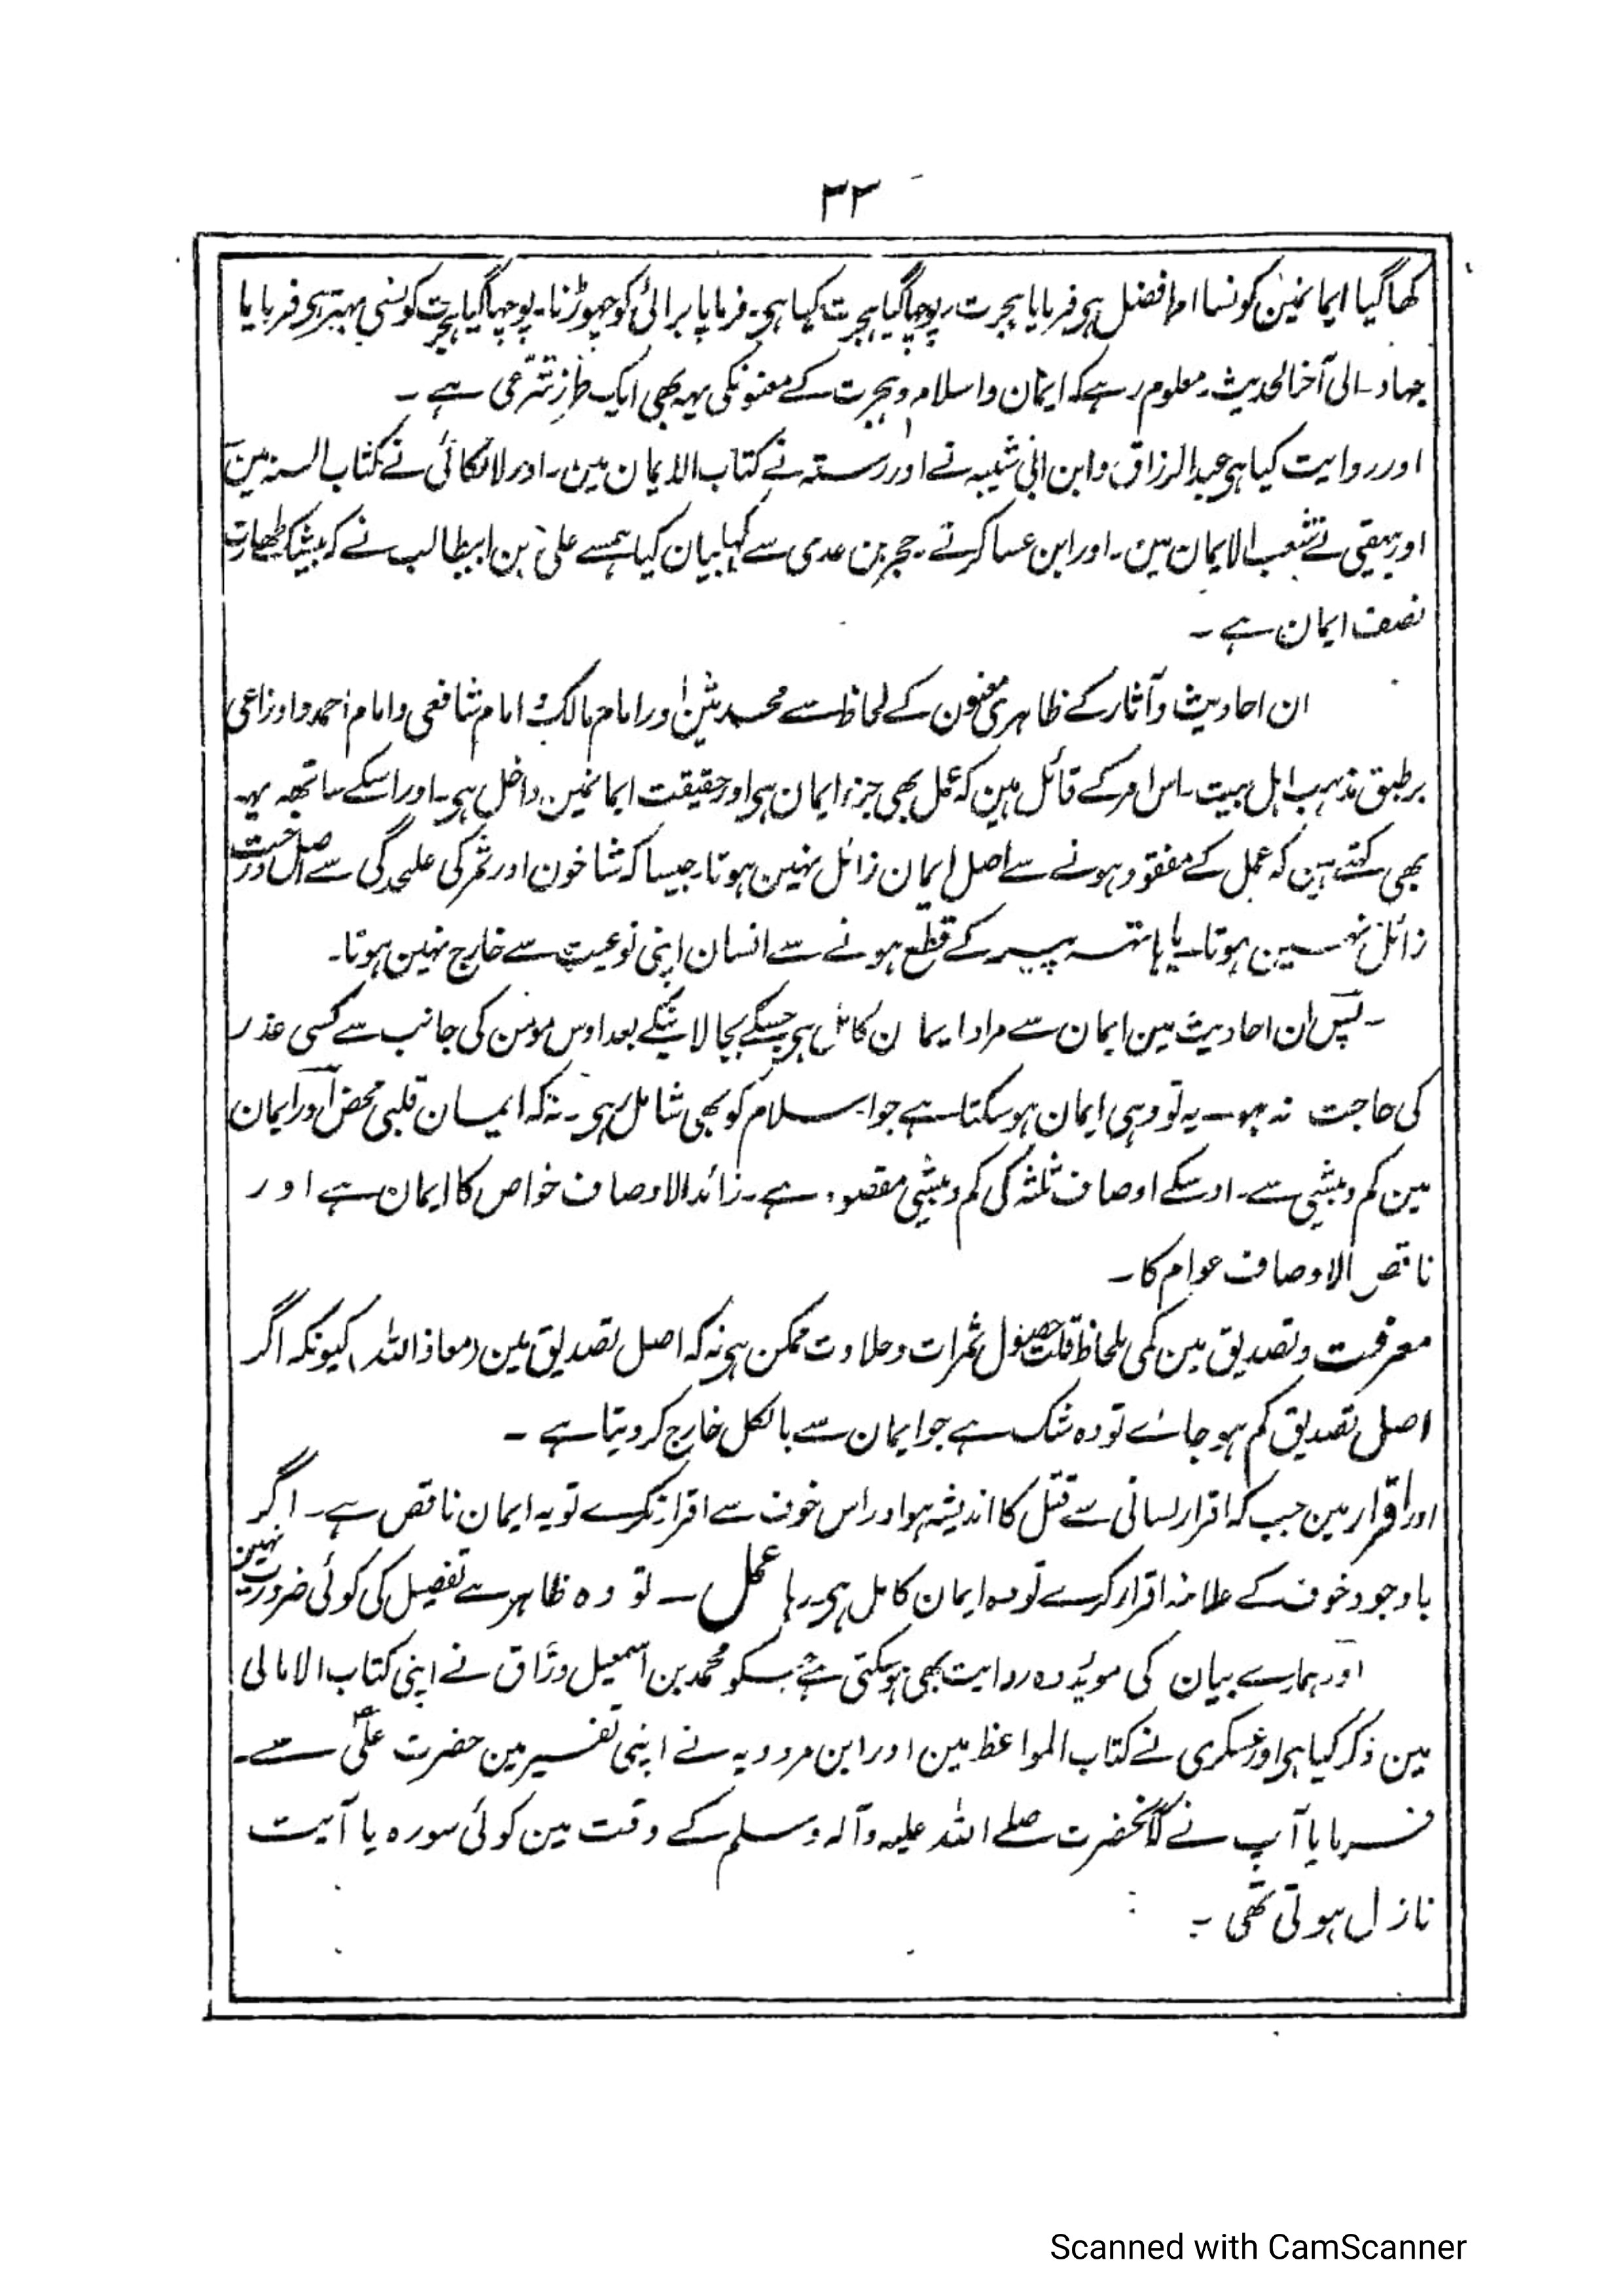 ۳۲
کہا گیا ایمانمین کونسا امر افضل ہی فرمایا ہجرت۔ پوچہا گیا ہجرت کیا ہی۔ فرمایا برائی کو چہوڑنا۔ پوچہا گیا ہجرت کونسی بہتر ہی فرمایا
جہاد۔ الی آخر الحدیث۔ معلوم رہے کہ ایمان و اسلام و ہجرت کے معنونکی یہہ بھی ایک طرز شرعی ہے ۔
اور روایت کیا ہی عبد الرزاق و ابن ابی شیبہ نے اور رستہ نے کتاب الایمان مین۔ اور لالکائی نے کتاب السنہ مین
اور بیہقی نے شعب الایمان مین۔ اور ابن عساکر نے۔ حجر بن عدی سے کہا بیان کیا ہمسے علی بن ابیطالب نے کہ بیشک طہارت
نصف ایمان ہے ۔
ان احادیث و آثار کے ظاہری معنون کے لحاظ سے محدثین اور امام مالک و امام شافعی و امام احمد و اوزاعی
بر طبق مذہب اہل بیت۔ اس امر کے قائل ہین کہ عمل بھی جزء ایمان ہی اور حقیقت ایمانمین داخل ہی۔ اور اسکے ساتھہ یہہ
بھی کہتے ہین کہ عمل کے مفقود ہونے سے اصل ایمان زائل نہین ہوتا۔ جیسا کہ شاخون اور ثمر کی علحدگی سے اصل درخت
زائل نہین ہوتا۔ یا ہاتہہ پیر کے قطع ہونے سے انسان اپنی نوعیت سے خارج نہین ہوتا۔
۔ پس ان احادیث مین ایمان سے مراد ایمان کامل ہی جسکے بجا لانیکے بعد اوس مومن کی جانب سے کسی عذر
کی حاجت نہ ہو۔ یہ تو وہی ایمان ہو سکتا ہے جو اسلام کو بھی شامل ہی۔ نہ کہ ایمان قلبی محض اور ایمان
مین کم و بیشی سے۔ اوسکے اوصاف ثلثہ کی کم و بیشی مقصود ہے۔ زائد الاوصاف خواص کا ایمان ہے اور
ناقص الاوصاف عوام کا ۔
معرفت و تصدیق مین کمی بلحاظ قلت حصول ثمرات و حلاوت ممکن ہی نہ کہ اصل تصدیق مین (معاذ اللہ) کیونکہ اگر
اصل تصدیق کم ہو جاے تو وہ شک ہے جو ایمان سے بالکل خارج کر دیتا ہے ۔
اور اقرار مین جب کہ اقرار لسانی سے قتل کا اندیشہ ہو اور اس خوف سے اقرار نکرے تو یہ ایمان ناقص ہے۔ اگر
باوجود خوف کے علانیہ اقرار کرے تو وہ ایمان کامل ہی۔ رہا عمل ۔ تو وہ ظاہر ہے تفصیل کی کوئی ضرورت نہین
اور ہمارے بیان کی موید وہ روایت بھی ہو سکتی ہے جسکو محمد بن اسمعیل وراق نے اپنی کتاب الامالی
مین ذکر کیا ہی اور عسکری نے کتاب المواعظ مین اور ابن مردویہ نے اپنی تفسیر مین حضرت علیؑ سے۔
فرمایا آپ نے کہ آنحضرت صلے اللہ علیہ وآلہ وسلم کے وقت مین کوئی سورہ یا آیت
نازل ہوتی تھی ۔
Scanned with CamScanner